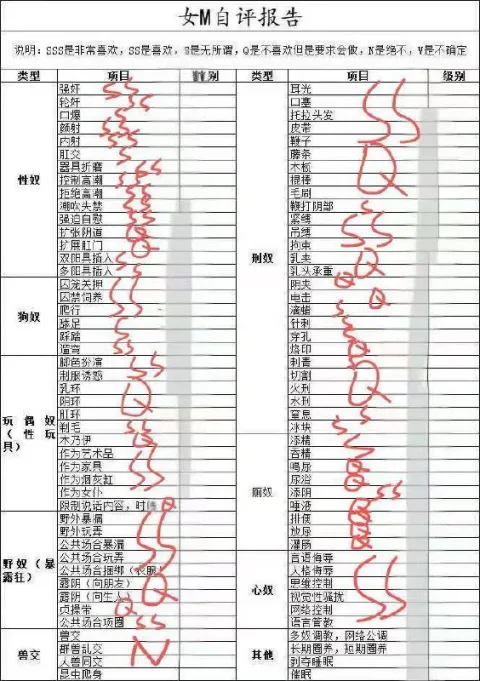 女M自评报告
说明：SSS是非常喜欢，SS是喜欢，S是无所谓，Q是不喜欢但是要求会做，N是绝不，V是不确定
类型 项目 别
性奴
强奸
轮奸
口爆
颜射
内射
肛交
器具折磨
控制高潮
拒绝高潮
潮吹失禁
强迫自慰
扩张阴道
扩展肛门
双阳具插入
多阳具插入
狗奴
囚笼关押
囚禁饲养
爬行
舔足
踩踏
遛弯
玩偶奴（性玩具）
脚色扮演
制服诱惑
乳环
阴环
肛环
剃毛
木乃伊
作为艺术品
作为家具
作为烟灰缸
作为女仆
限制说话内容，时
野奴（暴露狂）
野外暴漏
野外玩弄
公共场合暴漏
公共场合玩弄
公共场合捆绑（衣服
露阴（向朋友）
露阴（向生人）
贞操带
公共场合项圈
兽交
兽交
群兽乱交
人兽同交
昆虫爬身
类型 项目 级别
刑奴
耳光
口塞
托拉头发
皮带
鞭子
藤条
木板
棍棒
毛刷
鞭打阴部
紧缚
吊缚
拘束
乳夹
乳头承重
阴夹
电击
滴蜡
针刺
穿孔
烙印
刺青
切割
火刑
水刑
窒息
冰块
厕奴
添精
吞精
喝尿
尿浴
添阴
唾液
排便
放尿
灌肠
心奴
言语侮辱
人格侮辱
思维控制
视觉性骚扰
网络控制
语言管教
其他
多奴调教，网络公调
长期圈养，短期圈养
剥夺睡眠
催眠